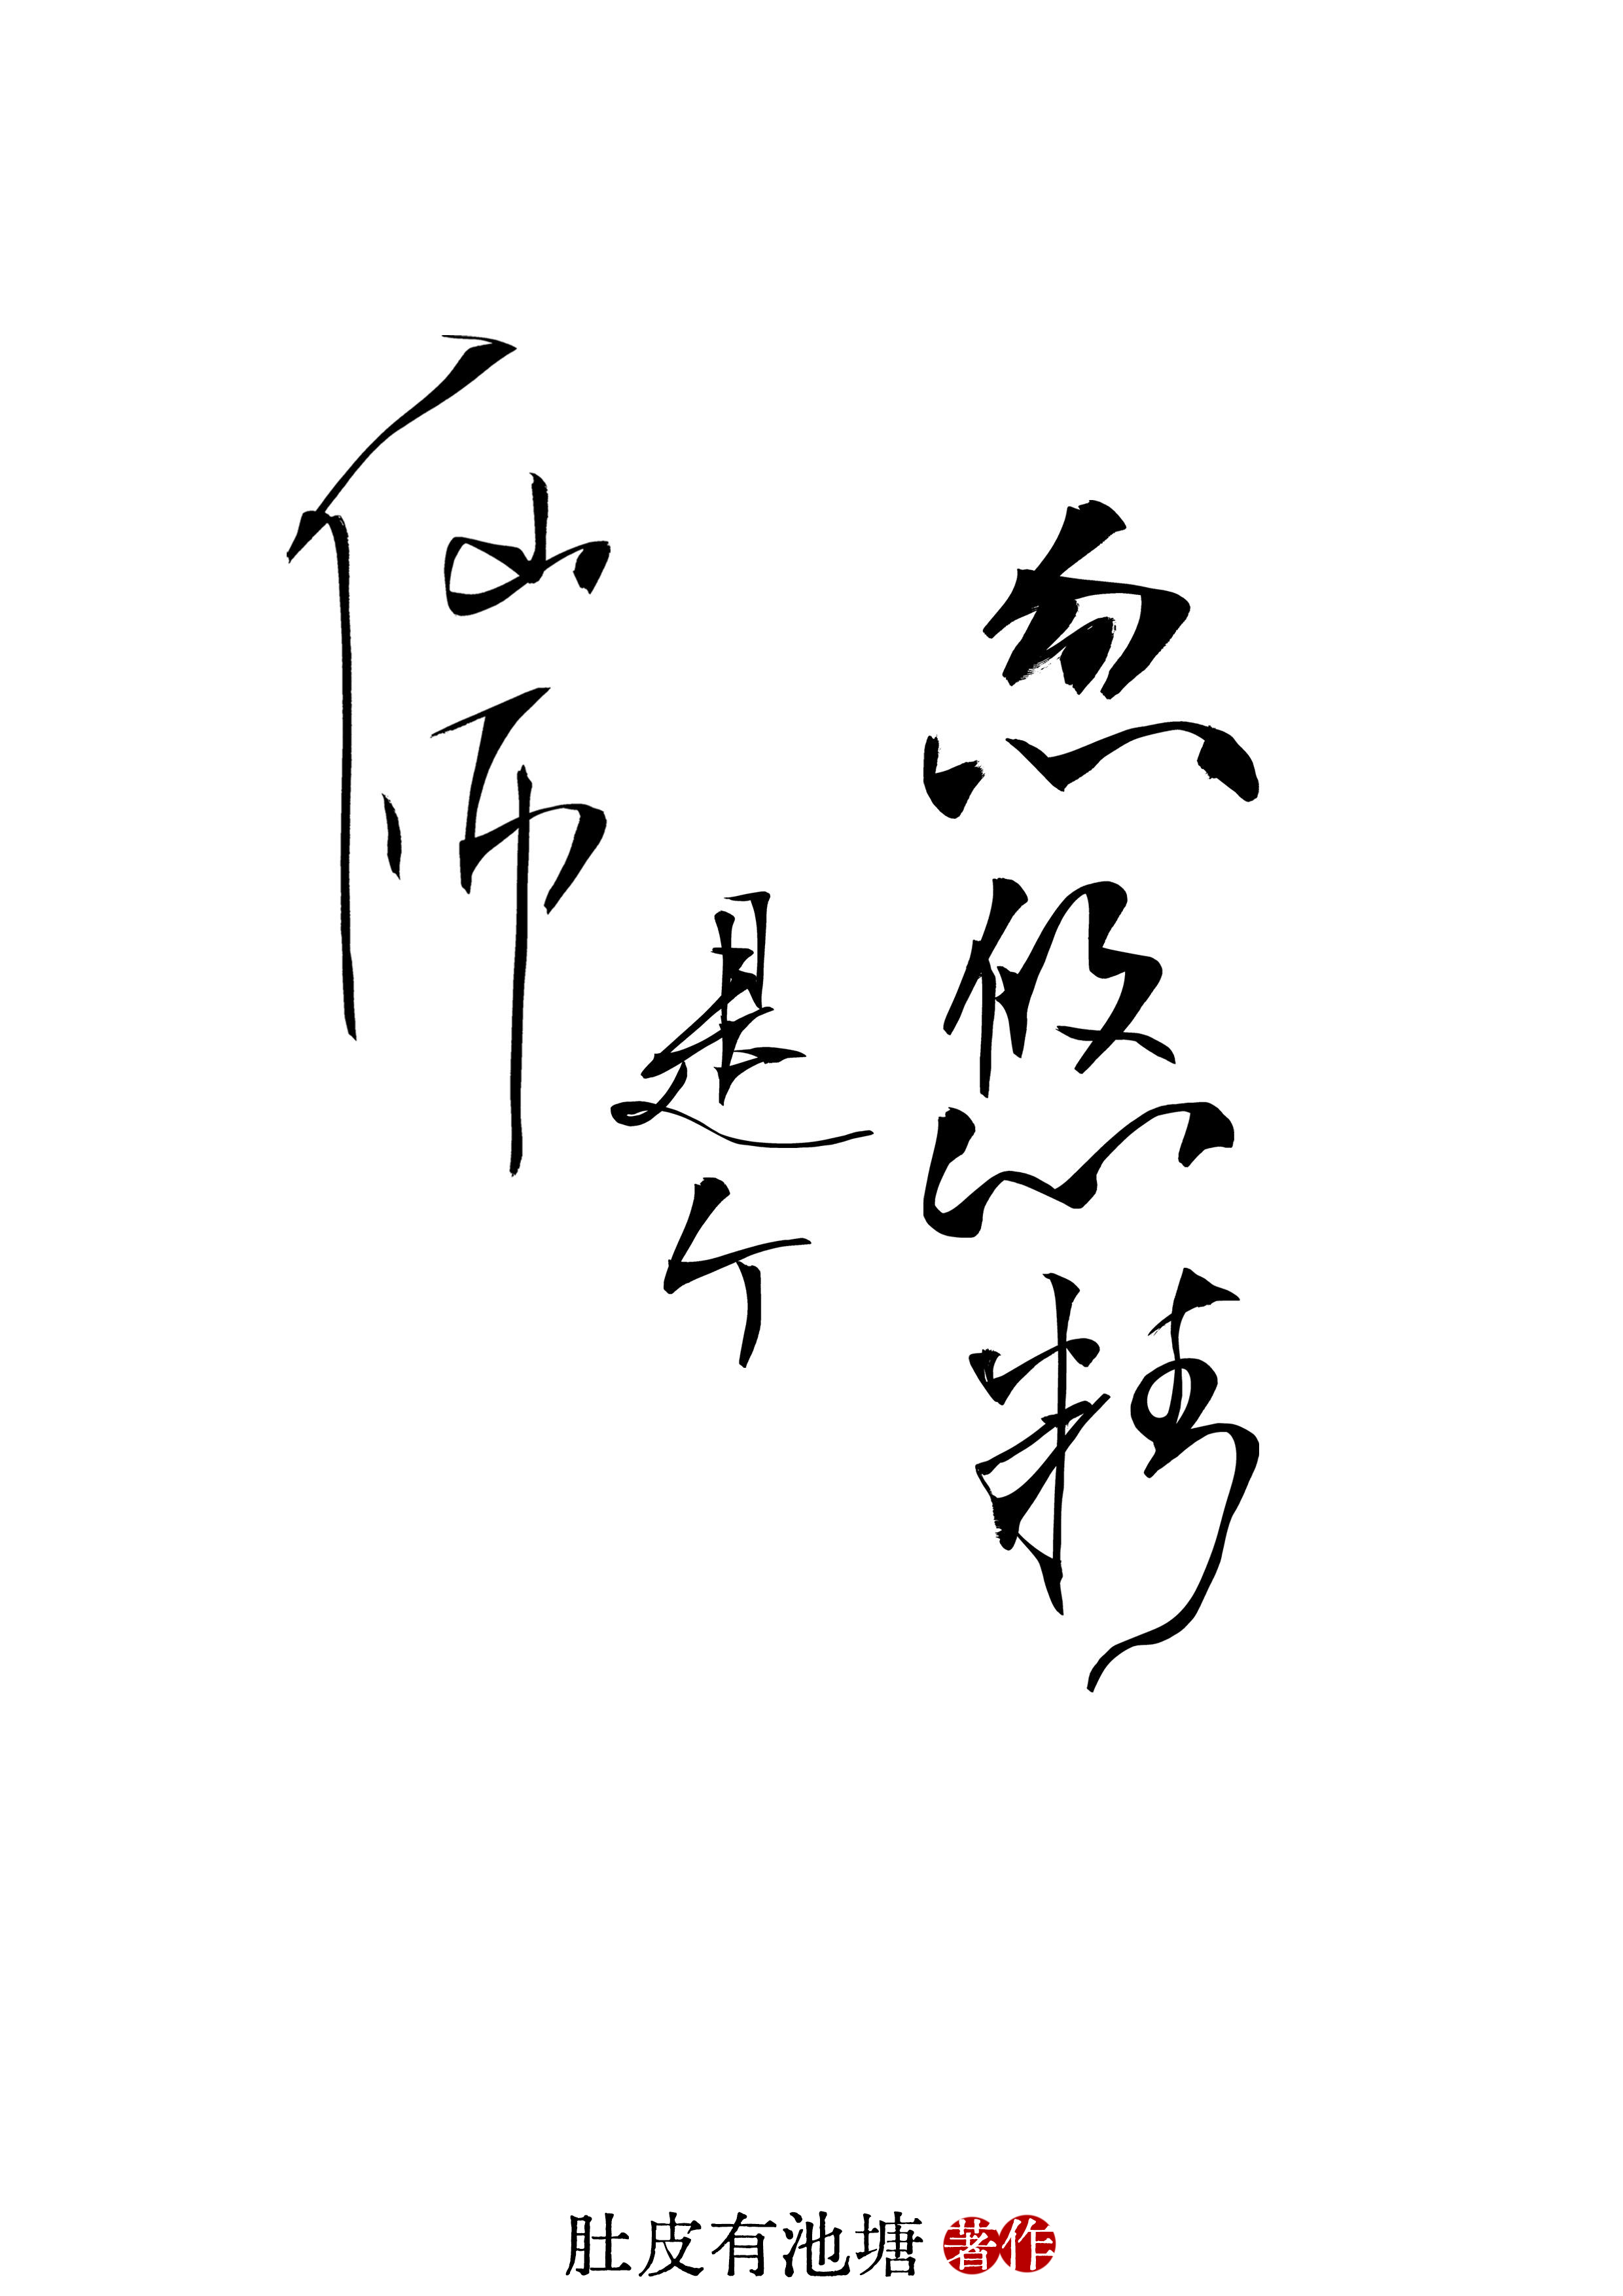 忽悠精
是个
仙师
肚皮有池塘 著作